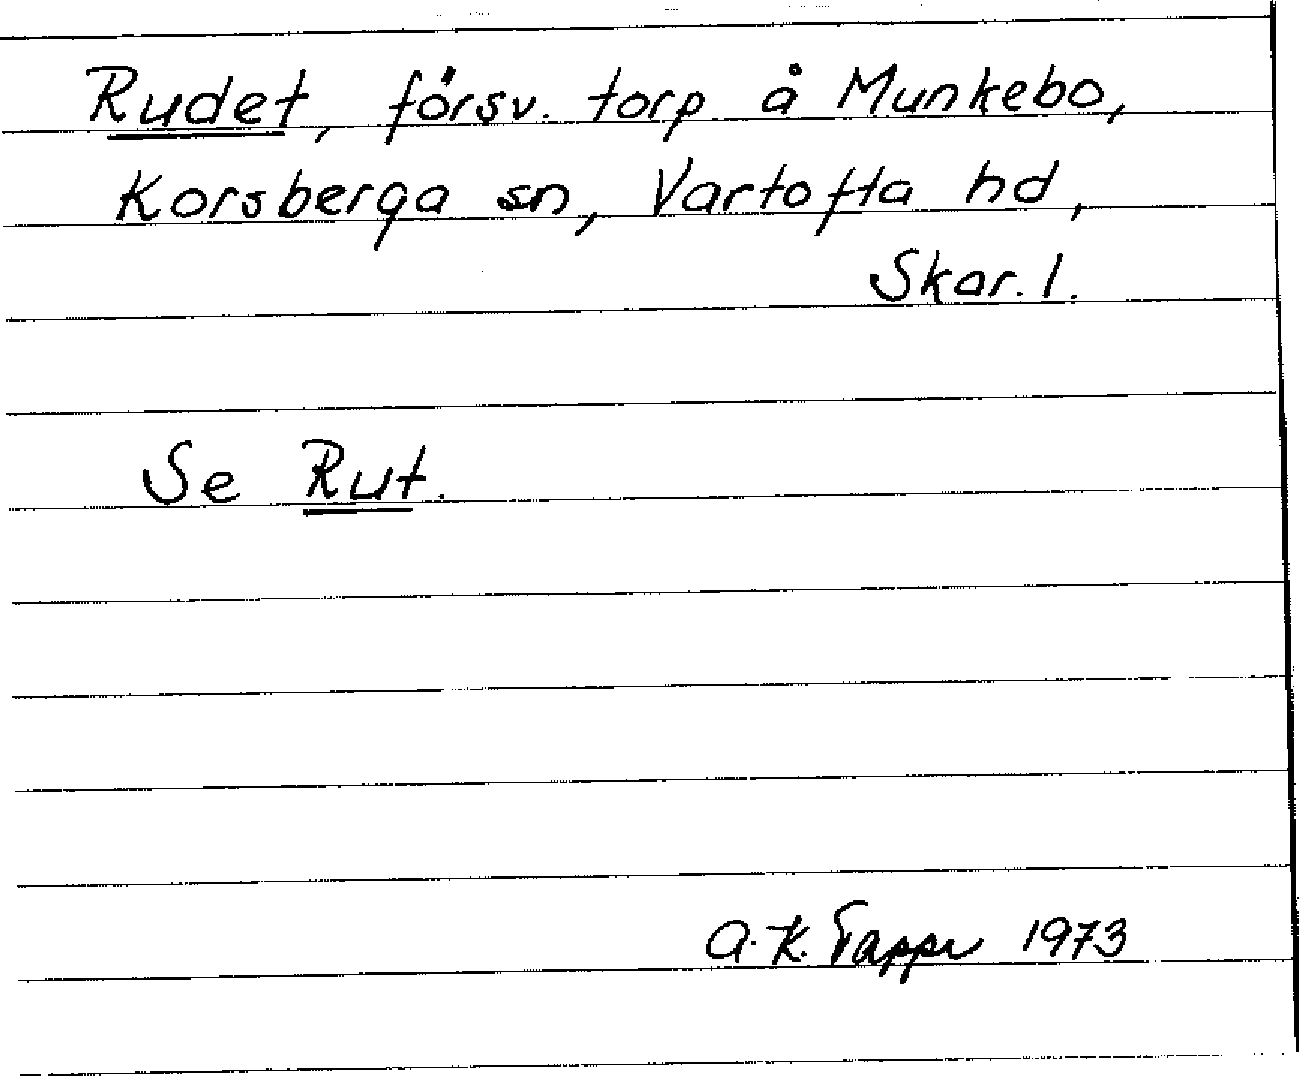 Rudet, försv. torp å Munkebo,
Korsberga sn, Vartofta hd,
Skar. l.
Se Rut.
A. K. Tapper 1973